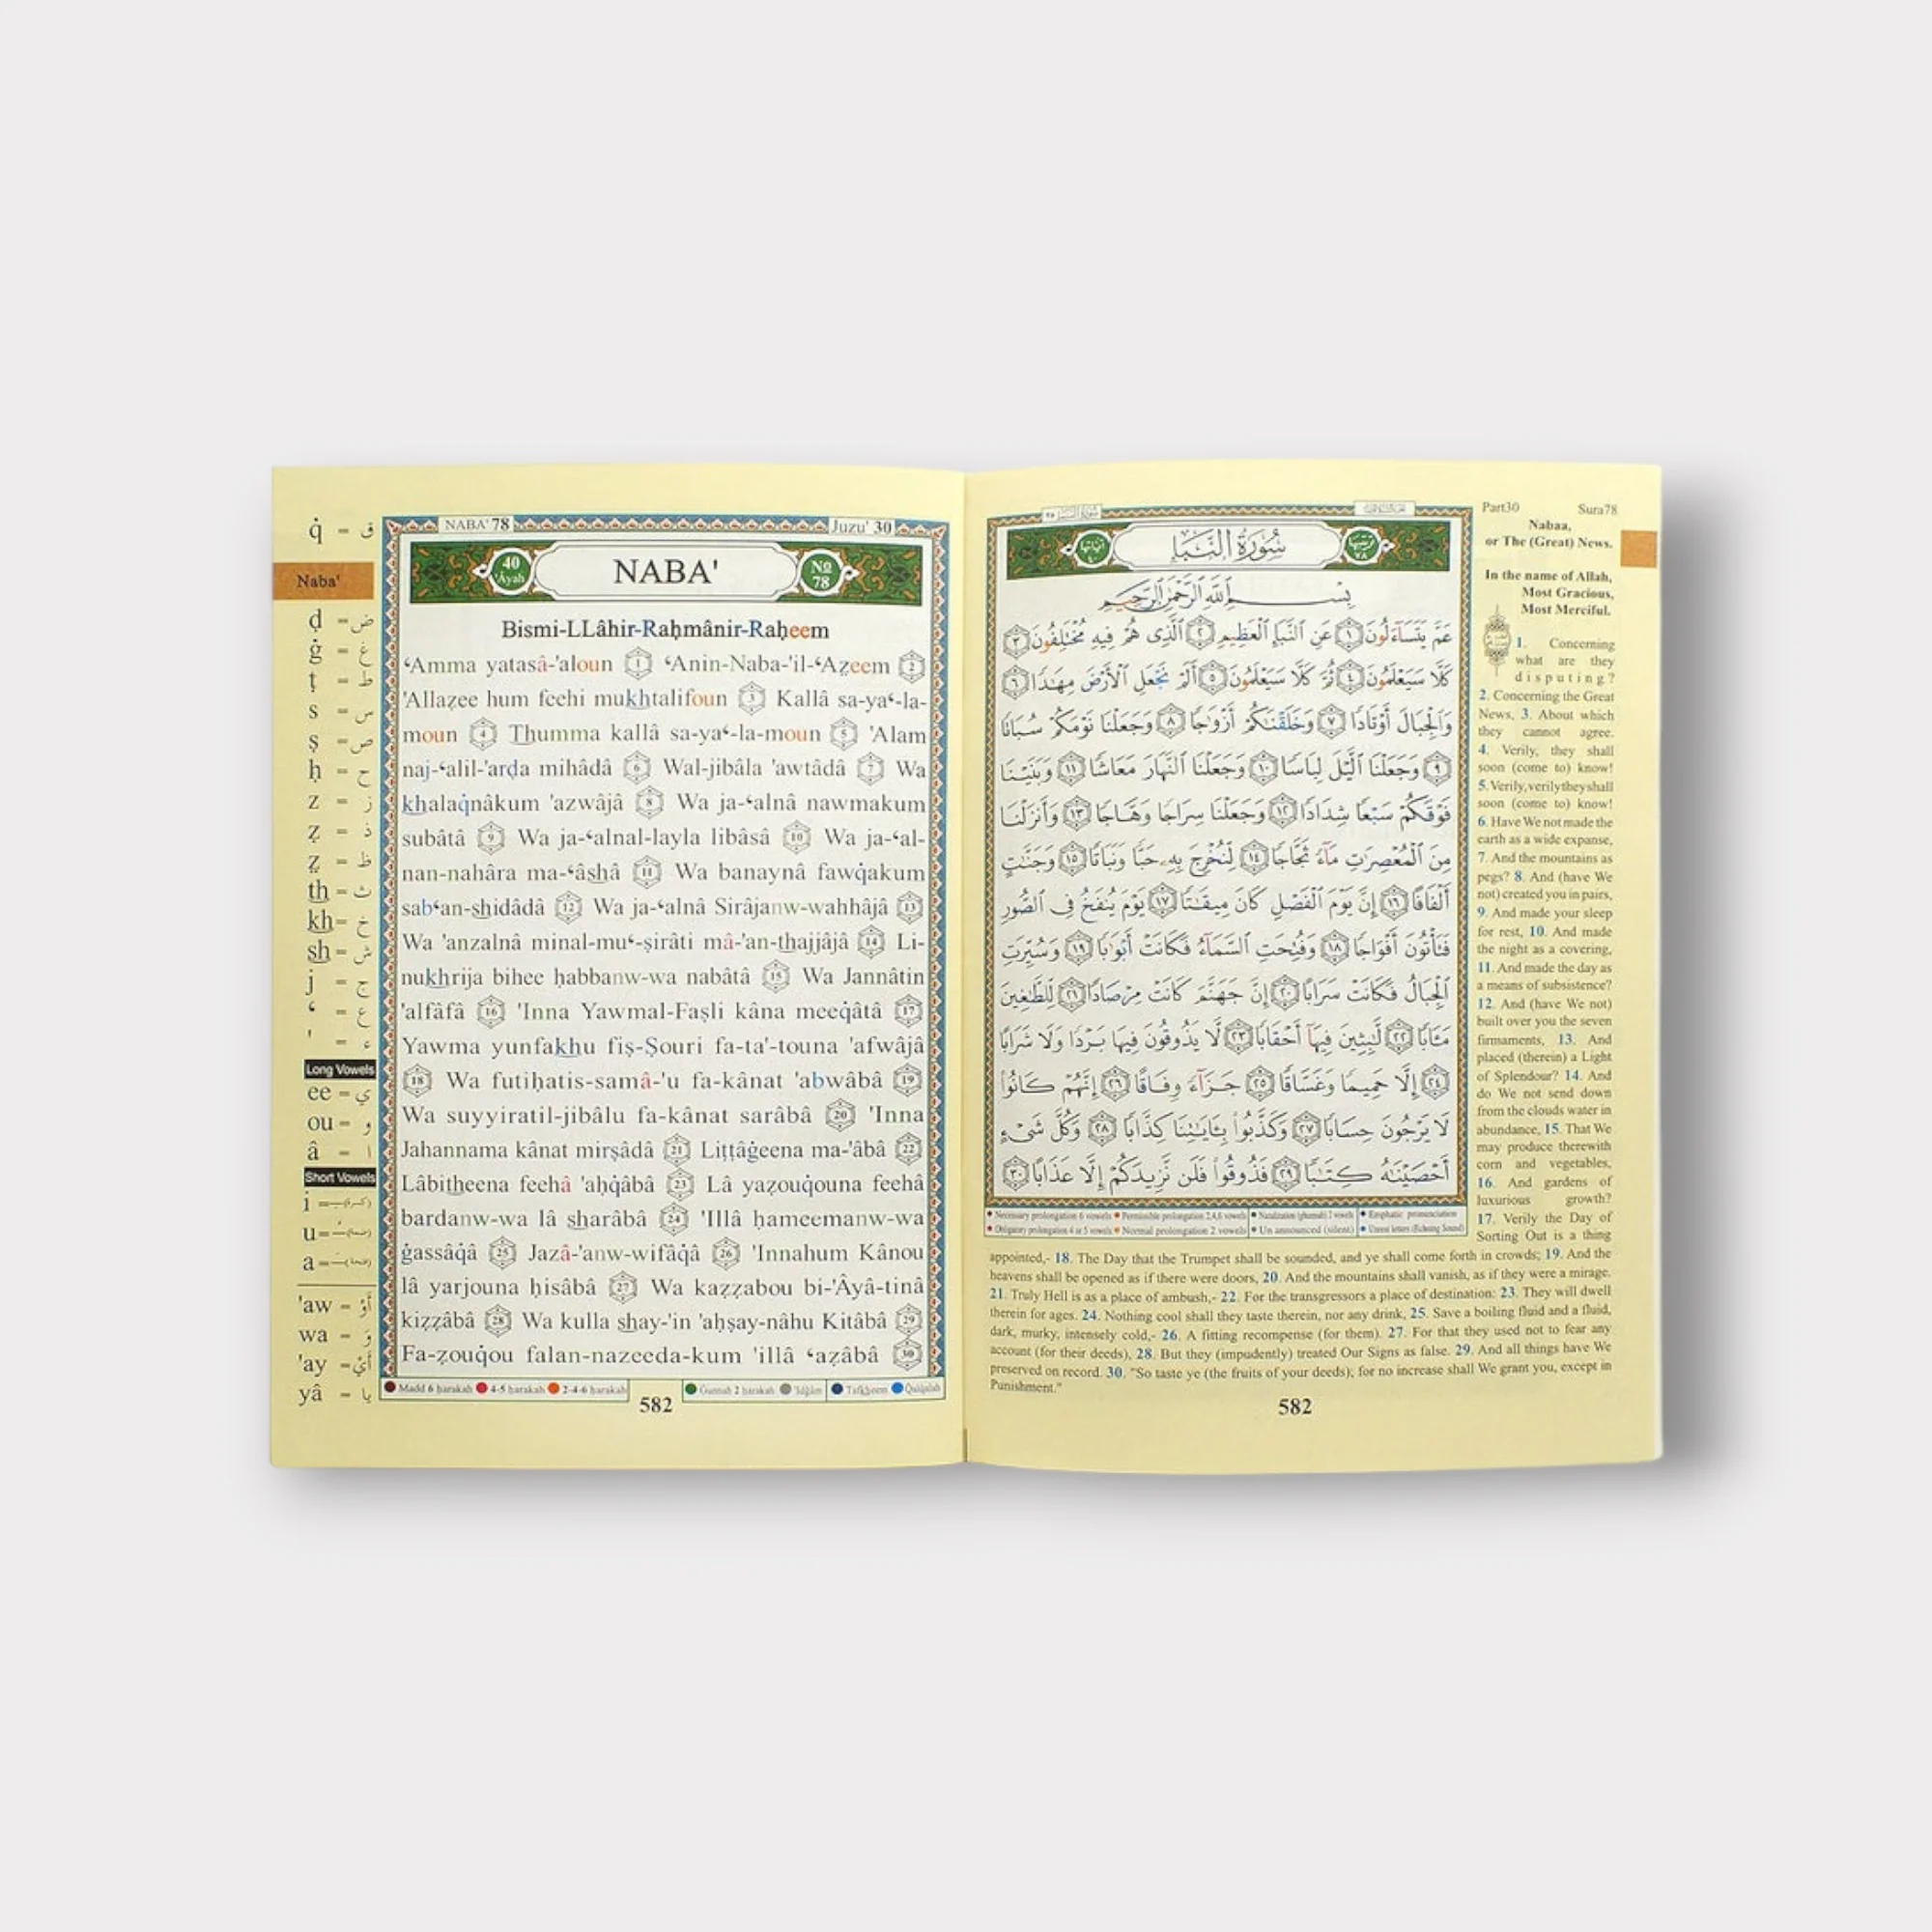 q̇ = ق
Naba'
ḍ = ض
ġ = غ
ṭ = ط
s = س
ṣ = ص
ḥ = ح
z = ز
ẓ = ذ
ẓ = ظ
th = ث
kh = خ
sh = ش
j = ج
‘ = ع
' = ء
Long Vowels
ee = ي
ou = و
â = ا
Short Vowels
i =
u =
a =
'aw = أَوْ
wa = وَ
'ay = أَيْ
yâ = يا
NABA' 78
Juzu' 30
40 'Âyah
NABA'
No 78
Bismi-LLâhir-Raḥmânir-Raḥeem
‘Amma yatasâ-'aloun 1 ‘Anin-Naba-'il-‘Aẓeem 2
'Allaẓee hum feehi mukhtalifoun 3 Kallâ sa-ya‘-la-
moun 4 Thumma kallâ sa-ya‘-la-moun 5 'Alam
naj-‘alil-'arḍa mihâdâ 6 Wal-jibâla 'awtâdâ 7 Wa
khalaq̇nâkum 'azwâjâ 8 Wa ja-‘alnâ nawmakum
subâtâ 9 Wa ja-‘alnal-layla libâsâ 10 Wa ja-‘al-
nan-nahâra ma-‘âshâ 11 Wa banaynâ fawq̇akum
sab‘an-shidâdâ 12 Wa ja-‘alnâ Sirâjanw-wahhâjâ 13
Wa 'anzalnâ minal-mu‘-ṣirâti mâ-'an-thajjâjâ 14 Li-
nukhrija bihee ḥabbanw-wa nabâtâ 15 Wa Jannâtin
'alfâfâ 16 'Inna Yawmal-Faṣli kâna meeq̇âtâ 17
Yawma yunfakhu fiṣ-Ṣouri fa-ta'-touna 'afwâjâ
18 Wa futiḥatis-samâ-'u fa-kânat 'abwâbâ 19
Wa suyyiratil-jibâlu fa-kânat sarâbâ 20 'Inna
Jahannama kânat mirṣâdâ 21 Liṭṭâġeena ma-'âbâ 22
Lâbitheena feehâ 'aḥq̇âbâ 23 Lâ yaẓouq̇ouna feehâ
bardanw-wa lâ sharâbâ 24 'Illâ ḥameemanw-wa
ġassâq̇â 25 Jazâ-'anw-wifâq̇â 26 'Innahum Kânou
lâ yarjouna ḥisâbâ 27 Wa kaẓẓabou bi-'Âyâ-tinâ
kiẓẓâbâ 28 Wa kulla shay-'in 'aḥṣay-nâhu Kitâbâ 29
Fa-ẓouq̇ou falan-nazeeda-kum 'illâ ‘aẓâbâ 30
Madd 6 ḥarakah 4-5 ḥarakah 2-4-6 ḥarakah Ġunnah 2 ḥarakah 'Idġâm Tafkheem Qalqalah
582
سُورَةُ النَّبَإِ
بِسْمِ اللَّهِ الرَّحْمَٰنِ الرَّحِيمِ
عَمَّ يَتَسَآءَلُونَ ١ عَنِ النَّبَإِ الْعَظِيمِ ٢ الَّذِى هُمْ فِيهِ مُخْتَلِفُونَ ٣
كَلَّا سَيَعْلَمُونَ ٤ ثُمَّ كَلَّا سَيَعْلَمُونَ ٥ أَلَمْ نَجْعَلِ الْأَرْضَ مِهَٰدًا ٦
وَالْجِبَالَ أَوْتَادًا ٧ وَخَلَقْنَٰكُمْ أَزْوَٰجًا ٨ وَجَعَلْنَا نَوْمَكُمْ سُبَاتًا
٩ وَجَعَلْنَا الَّيْلَ لِبَاسًا ١٠ وَجَعَلْنَا النَّهَارَ مَعَاشًا ١١ وَبَنَيْنَا
فَوْقَكُمْ سَبْعًا شِدَادًا ١٢ وَجَعَلْنَا سِرَاجًا وَهَّاجًا ١٣ وَأَنزَلْنَا
مِنَ الْمُعْصِرَٰتِ مَآءً ثَجَّاجًا ١٤ لِّنُخْرِجَ بِهِۦ حَبًّا وَنَبَاتًا ١٥ وَجَنَّٰتٍ
أَلْفَافًا ١٦ إِنَّ يَوْمَ الْفَصْلِ كَانَ مِيقَٰتًا ١٧ يَوْمَ يُنفَخُ فِى الصُّورِ
فَتَأْتُونَ أَفْوَاجًا ١٨ وَفُتِحَتِ السَّمَآءُ فَكَانَتْ أَبْوَٰبًا ١٩ وَسُيِّرَتِ
الْجِبَالُ فَكَانَتْ سَرَابًا ٢٠ إِنَّ جَهَنَّمَ كَانَتْ مِرْصَادًا ٢١ لِّلطَّٰغِينَ
مَـَٔابًا ٢٢ لَّٰبِثِينَ فِيهَآ أَحْقَابًا ٢٣ لَّا يَذُوقُونَ فِيهَا بَرْدًا وَلَا شَرَابًا
٢٤ إِلَّا حَمِيمًا وَغَسَّاقًا ٢٥ جَزَآءً وِفَاقًا ٢٦ إِنَّهُمْ كَانُوا۟
لَا يَرْجُونَ حِسَابًا ٢٧ وَكَذَّبُوا۟ بِـَٔايَٰتِنَا كِذَّابًا ٢٨ وَكُلَّ شَىْءٍ
أَحْصَيْنَٰهُ كِتَٰبًا ٢٩ فَذُوقُوا۟ فَلَن نَّزِيدَكُمْ إِلَّا عَذَابًا ٣٠
Necessary prolongation 6 vowels Permissible prolongation 2,4,6 vowels Nazalization (ghunnah) 2 vowels Emphatic pronunciation
Obligatory prolongation 4 or 5 vowels Normal prolongation 2 vowels Un announced (silent) Unrest letters (Echoing Sound)
Part30 Sura78
Nabaa,
or The (Great) News.
In the name of Allah,
Most Gracious,
Most Merciful.
1. Concerning
what are they
disputing?
2. Concerning the Great
News, 3. About which
they cannot agree.
4. Verily, they shall
soon (come to) know!
5. Verily, verily they shall
soon (come to) know!
6. Have We not made the
earth as a wide expanse,
7. And the mountains as
pegs? 8. And (have We
not) created you in pairs,
9. And made your sleep
for rest, 10. And made
the night as a covering,
11. And made the day as
a means of subsistence?
12. And (have We not)
built over you the seven
firmaments, 13. And
placed (therein) a Light
of Splendour? 14. And
do We not send down
from the clouds water in
abundance, 15. That We
may produce therewith
corn and vegetables,
16. And gardens of
luxurious growth?
17. Verily the Day of
Sorting Out is a thing
appointed,- 18. The Day that the Trumpet shall be sounded, and ye shall come forth in crowds; 19. And the
heavens shall be opened as if there were doors, 20. And the mountains shall vanish, as if they were a mirage.
21. Truly Hell is as a place of ambush,- 22. For the transgressors a place of destination: 23. They will dwell
therein for ages. 24. Nothing cool shall they taste therein, nor any drink, 25. Save a boiling fluid and a fluid,
dark, murky, intensely cold,- 26. A fitting recompense (for them). 27. For that they used not to fear any
account (for their deeds), 28. But they (impudently) treated Our Signs as false. 29. And all things have We
preserved on record. 30. "So taste ye (the fruits of your deeds); for no increase shall We grant you, except in
Punishment."
582